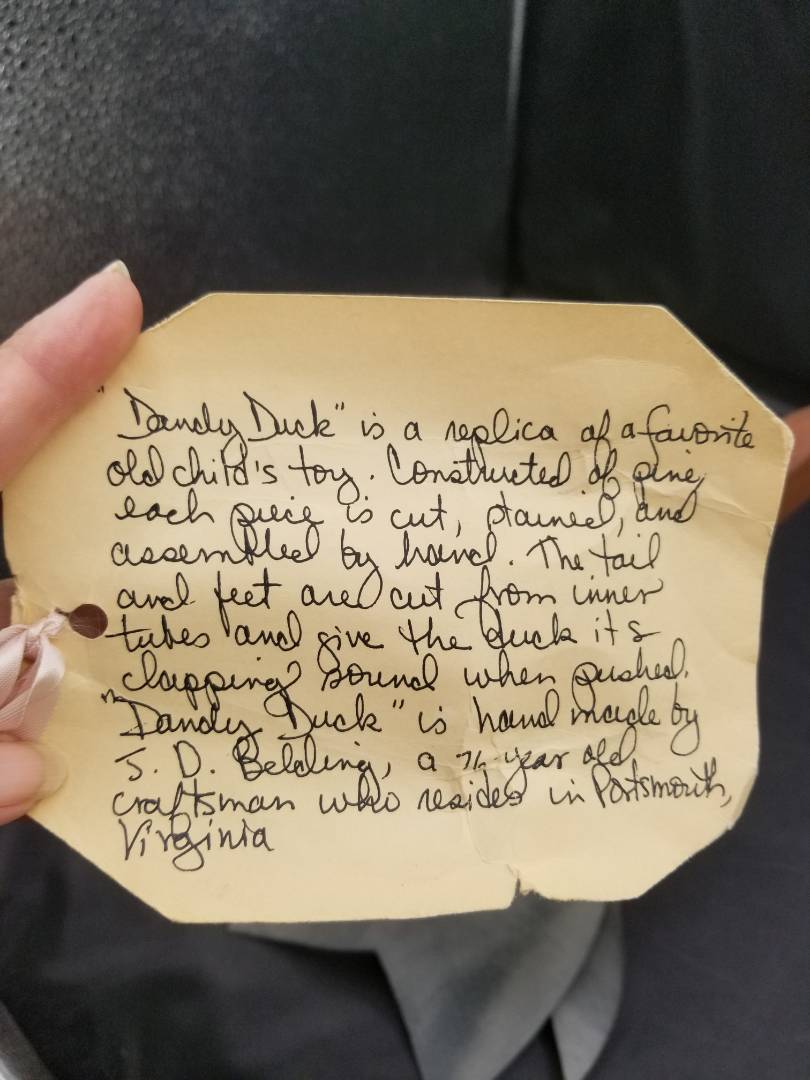 "Dandy Duck" is a replica of a favorite
old child's toy. Constructed of pine,
each piece is cut, stained, and
assembled by hand. The tail
and feet are cut from inner
tubes and give the duck its
clapping sound when pushed.
"Dandy Duck" is hand made by
J. D. Belding, a year old
craftsman who resides in Portsmouth,
Virginia